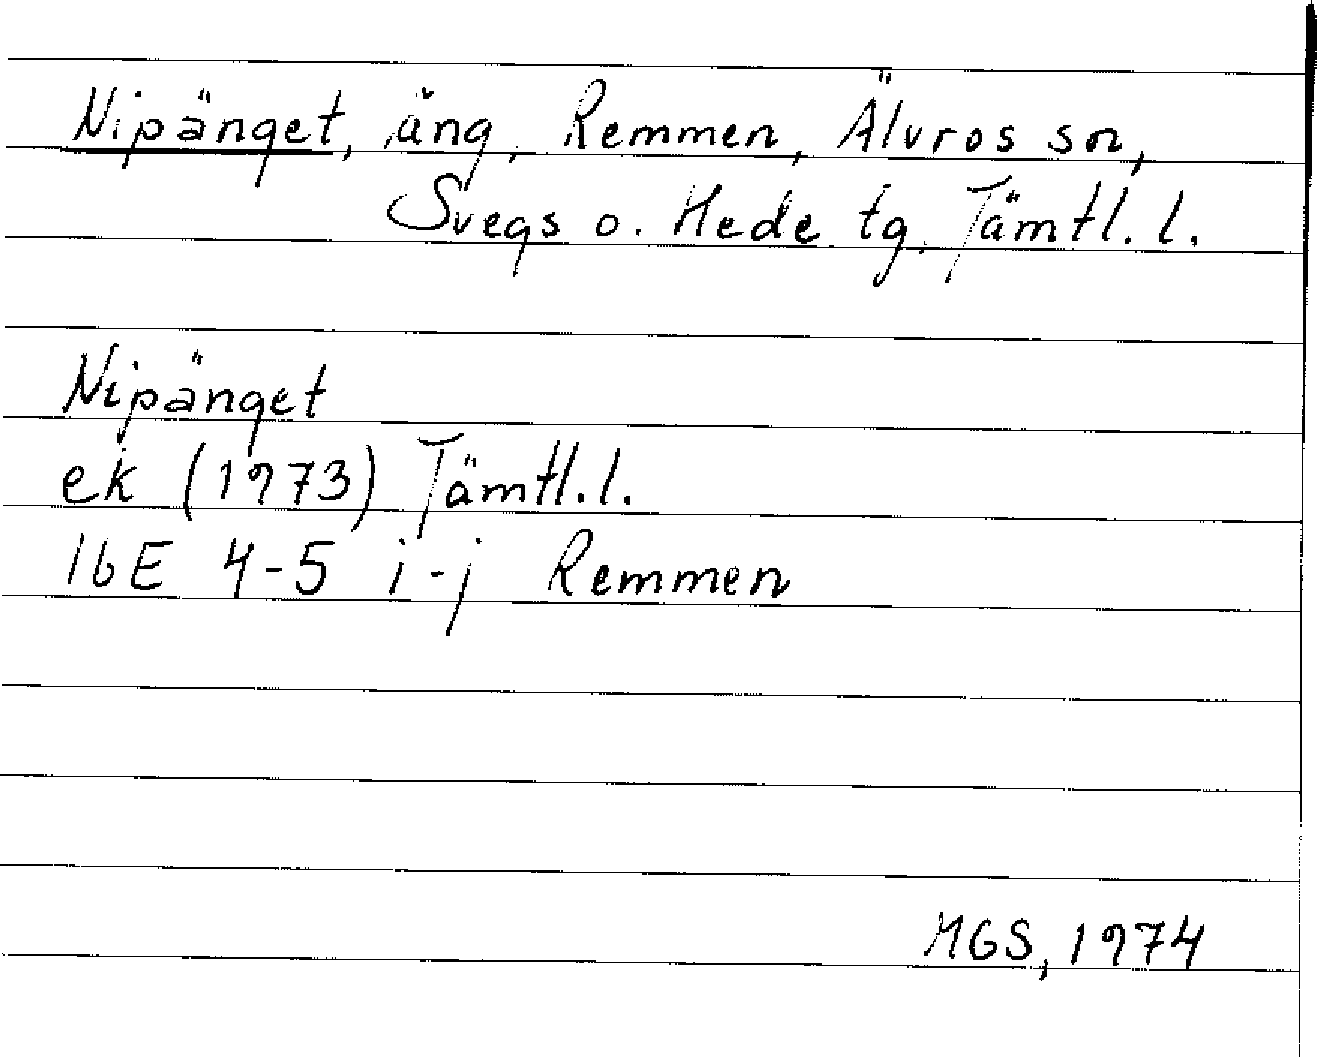 Nipänget, äng, Remmen, Älvros sn,
Svegs o. Hede tg. Jämtl. l.
Nipänget
ek (1973) Jämtl. l.
16E 4-5 i-j Remmen
MGS, 1974